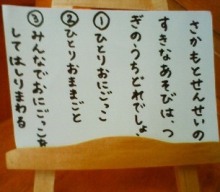 さかもとせんせいの
すきなあそびは、つ
ぎのうちどれでしょ、
①ひとりおにごっこ
②ひとりおままごと
③みんなでおにごっこを
してはしりまわる